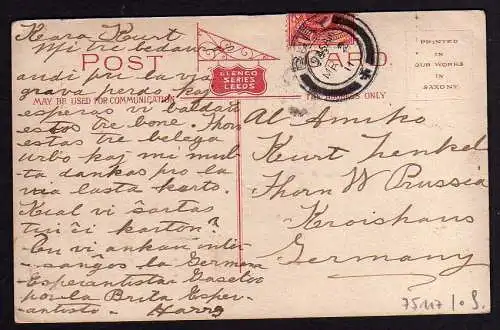 Kara Kurt
Mi tre bedauras
andi pri la via
grava perdo kaj
esperas vi baldaŭ
estos tre bone. Thorn
estas tre belega
urbo kaj mi mul-
ta dankas pro la
via lasta karto.
Kial vi ŝartas
tiu ĉi karton?
Ĉu vi ankaŭ inter-
sanĝos la Germana
Esperantistan Gaseton
por la Brita Esper-
antisto. Harry
POST CARD.
GLENCO
SERIES
LEEDS
MAY BE USED FOR COMMUNICATION
THE ADDRESS ONLY
PRINTED
IN
OUR WORKS
IN
SAXONY.
Al Amiko
Kurt Henkel
Thorn W Prussia
Kreishaus
Germany
75117